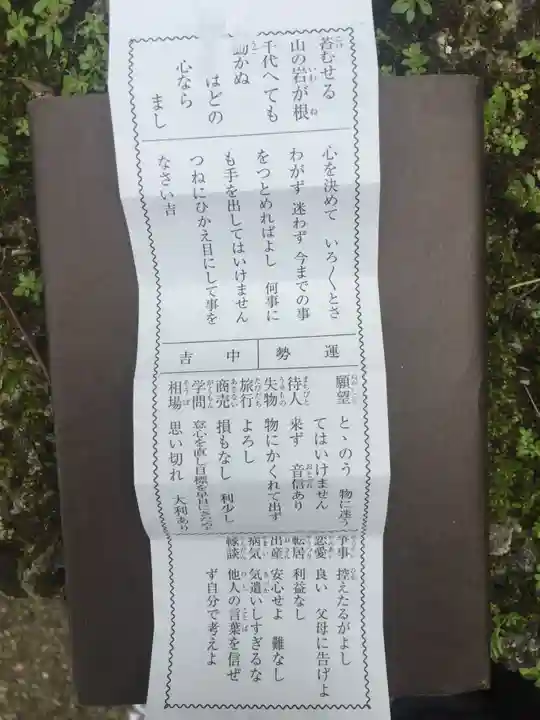 苔むせる
山の岩が根
千代へても
動かぬ
ほどの
心なら
まし
心を決めて いろ〳〵とさ
わがず 迷わず 今までの事
をつとめればよし 何事に
も手を出してはいけません
つねにひかえ目にして事を
なさい吉
運勢 中吉
願望 とゝのう 物に迷う
てはいけません
待人 来ず 音信あり
失物 物にかくれて出ず
旅行 よろし
商売 損もなし 利少し
学問 安心を直し目標を早目にさだめ
相場 思い切れ 大利あり
争事 控えたるがよし
恋愛 良い 父母に告げよ
転居 利益なし
出産 安心せよ 難なし
病気 気遣いしすぎるな
縁談 他人の言葉を信ぜ
ず自分で考えよ